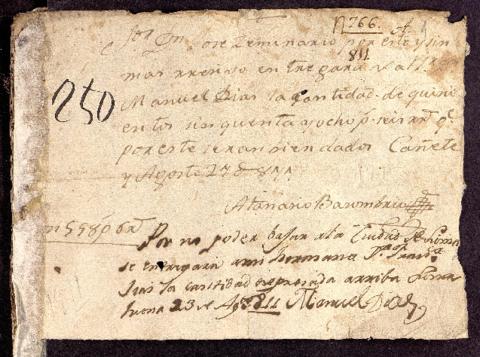 N 766. A
811
250
Sor Dn Jose Zeminario por este y sin
mas rrecivo entregara Vd al Sr
Manuel Dias la Cantidad de quini
entos sinquenta y ocho ps seis rrs q
por este seran bien dados Cañete
y Agosto 17 de 811
Atanasio Barombrio
558 p 6 rrs
Por no poder bajar a la Ciudad
se entregara a mi hermana Da
Dias la cantidad expresada arriba
buena 23 de Agto 811 Manuel Dias